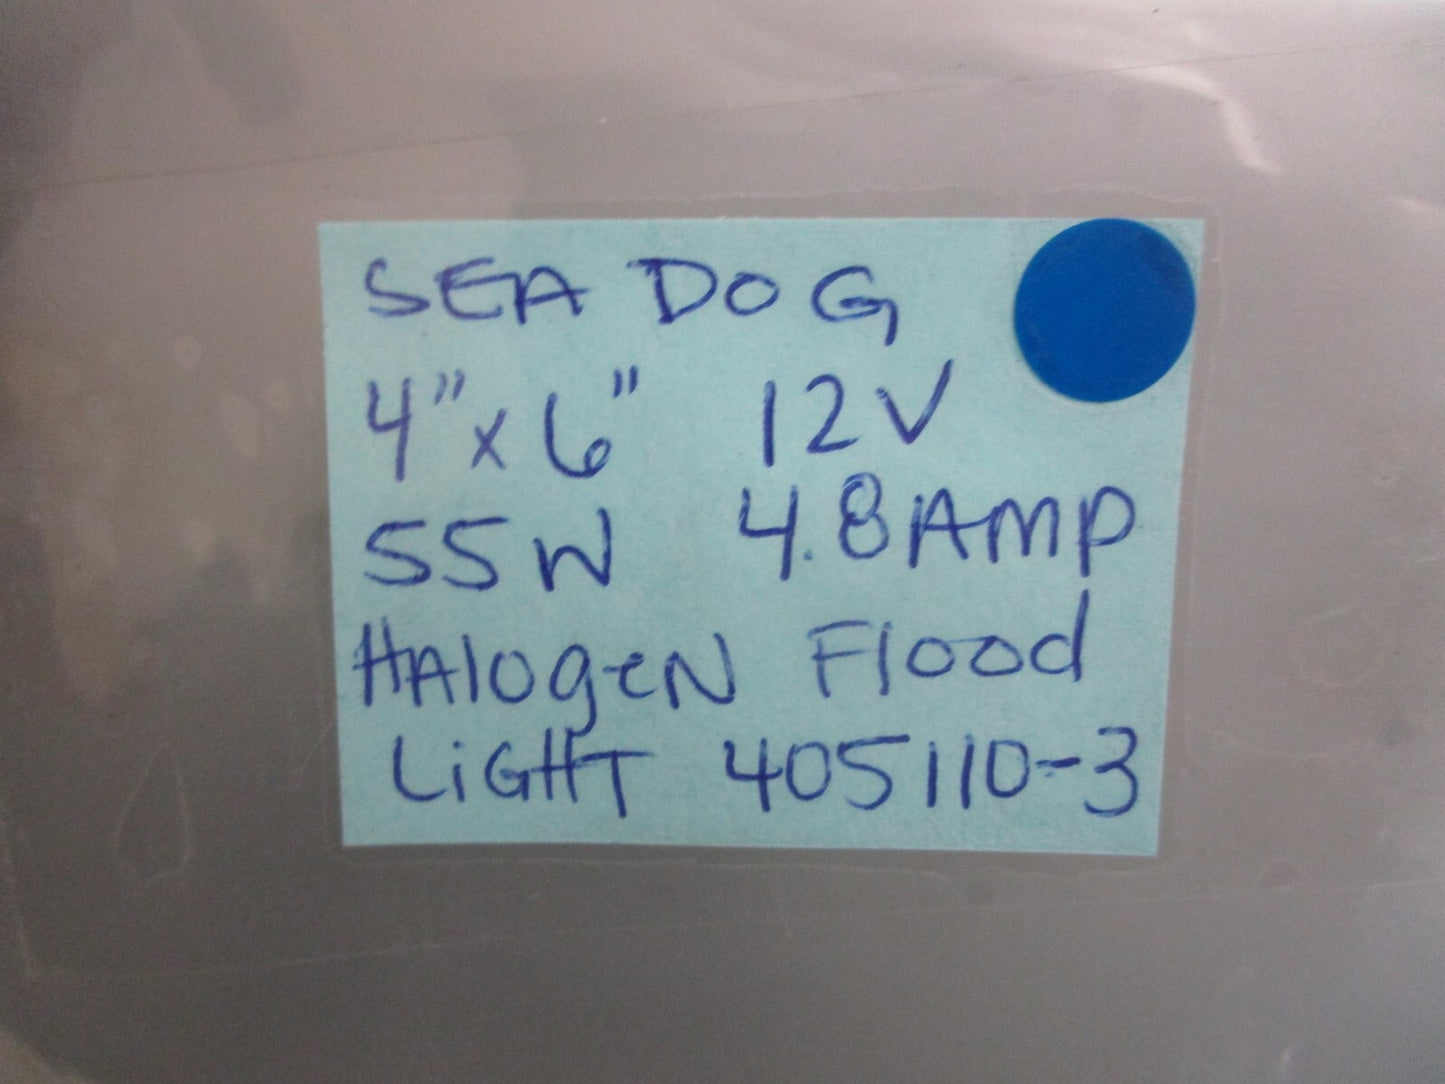 SEA DOG
4" x 6" 12V
55W 4.8 AMP
HAlogeN Flood
LiGHT 405110-3